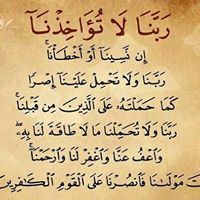 رَبَّنَا لَا تُؤَاخِذْنَآ
إِن نَّسِينَآ أَوْ أَخْطَأْنَا ۚ
رَبَّنَا وَلَا تَحْمِلْ عَلَيْنَآ إِصْرًا
كَمَا حَمَلْتَهُۥ عَلَى ٱلَّذِينَ مِن قَبْلِنَا ۚ
رَبَّنَا وَلَا تُحَمِّلْنَا مَا لَا طَاقَةَ لَنَا بِهِۦ ۖ
وَٱعْفُ عَنَّا وَٱغْفِرْ لَنَا وَٱرْحَمْنَآ ۚ
تَ مَوْلَىٰنَا فَٱنصُرْنَا عَلَى ٱلْقَوْمِ ٱلْكَٰفِرِينَ